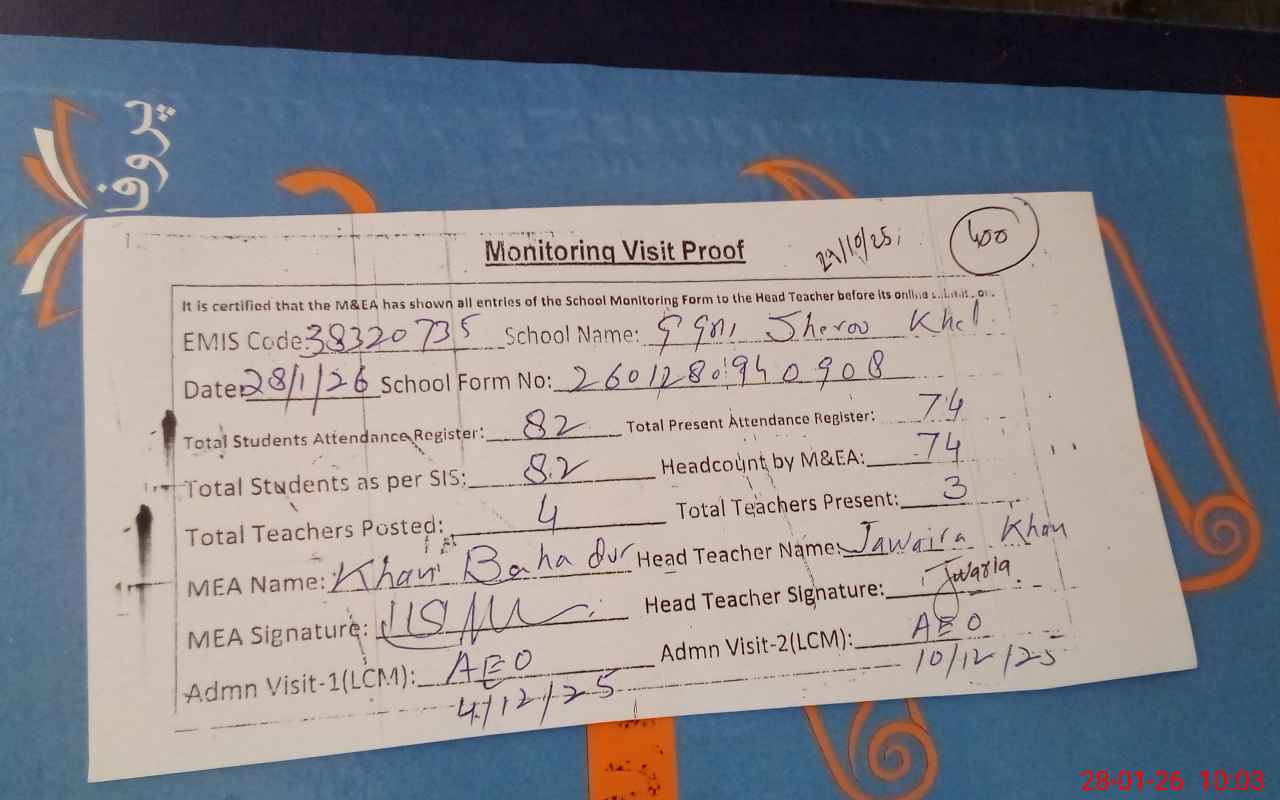 پروف
Monitoring Visit Proof
29/10/25
400
It is certified that the M&EA has shown all entries of the School Monitoring Form to the Head Teacher before its online
EMIS Code: 38320735 School Name: Sheroo Khel
Date: 28/1/26 School Form No: 2601280940908
Total Students Attendance Register: 82 Total Present Attendance Register: 74
Total Students as per SIS: 82 Headcount by M&EA: 74
Total Teachers Posted: 4 Total Teachers Present: 3
MEA Name: Khan Bahadur Head Teacher Name: Jawaira Khan
MEA Signature: Head Teacher Signature: Jwaria
Admn Visit-1(LCM): AEO Admn Visit-2(LCM): AEO
4/12/25 10/12/25
28-01-26 10:03